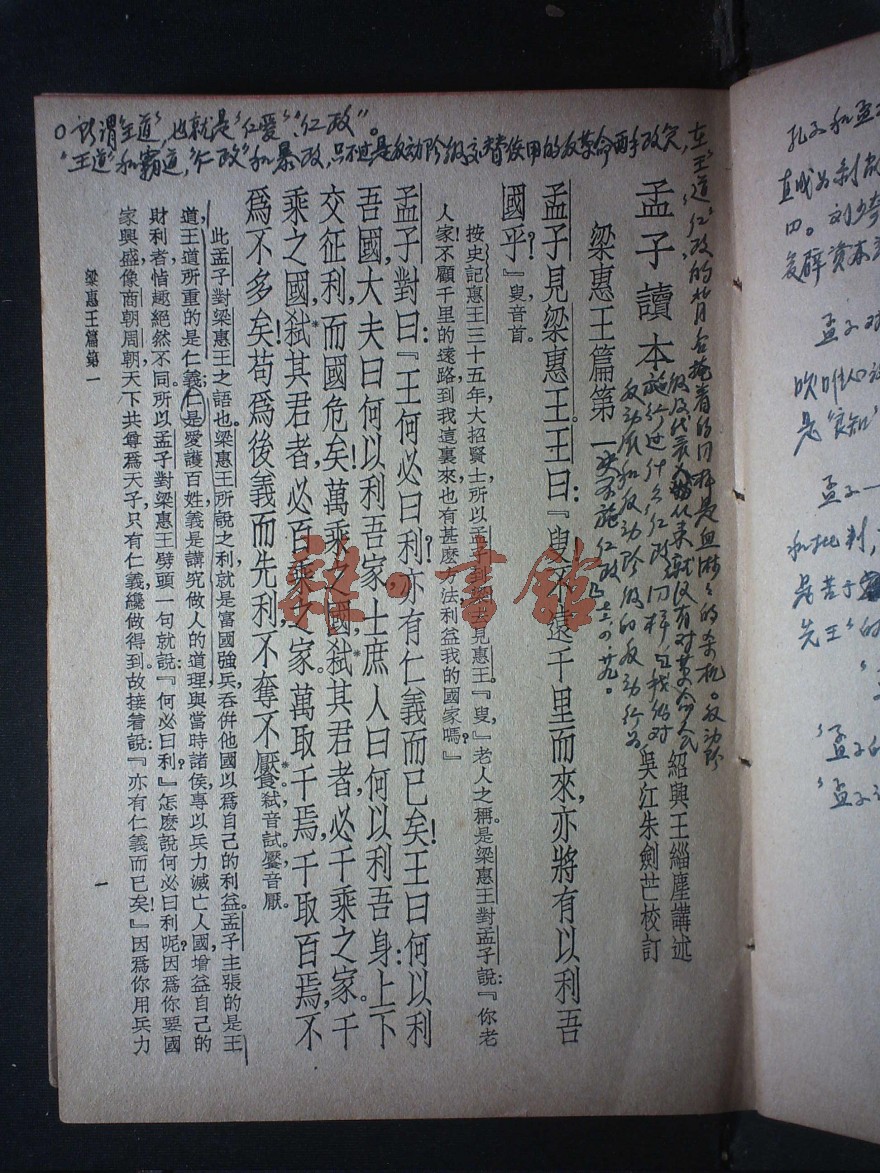 ○所谓“王道”，也就是“仁爱”、“仁政”。
“王道”和霸道，“仁政”和暴政，只不过是反动阶级交替使用的反革命两手政策，在“王道”
“仁”政的背后掩着的同样是血淋淋的杀机。反动阶
级及代表人物从来就没有对革命人民
施行过什么仁政，同样，我们对
反动派和反动阶级的反动行为
决不施仁政
孟子讀本
紹興王緇塵講述
吳江朱劍芒校訂
梁惠王篇第一
孟子見梁惠王。王曰：『叟不遠千里而來，亦將有以利吾
國乎？』叟音首。
按史記惠王三十五年，大招賢士，所以孟子到梁去見惠王。『叟，』老人之稱。是梁惠王對孟子說：『你老
人家！不顧千里的遠路到我這裏來，也有甚麼方法利益我的國家嗎？』
孟子對曰：『王何必曰利？亦有仁義而已矣！王曰：何以利
吾國，大夫曰何以利吾家，士庶人曰何以利吾身，上下
交征利，而國危矣！萬乘之國，弒其君者，必千乘之家。千
乘之國，弒其君者，必百乘之家。萬取千焉，千取百焉，不
爲不多矣！苟爲後義而先利，不奪不饜。弒音試。饜音厭。
此孟子對梁惠王之語也。梁惠王所說之利，就是富國強兵，吞併他國以爲自己的利益。孟子主張的是王
道，王道所重的是仁義；仁是愛護百姓，義是講究做人的道理，與當時諸侯專以兵力滅亡人國，增益自己的
財利者，惝趣絕然不同。所以孟子對梁惠王劈頭一句就說：『何必曰利』怎麽說何必曰利呢？因爲你要國
家興盛，像商朝周朝，天下共尊爲天子，只有仁義纔做得到。故接着說：『亦有仁義而已矣！』因爲你用兵力
梁惠王篇第一
一
雜·書館
孔子和孟
四。刘少奇
复辟资本主
孟子对
是“良知”
孟子一
和批判，
先王”的
“孟子的
“孟子